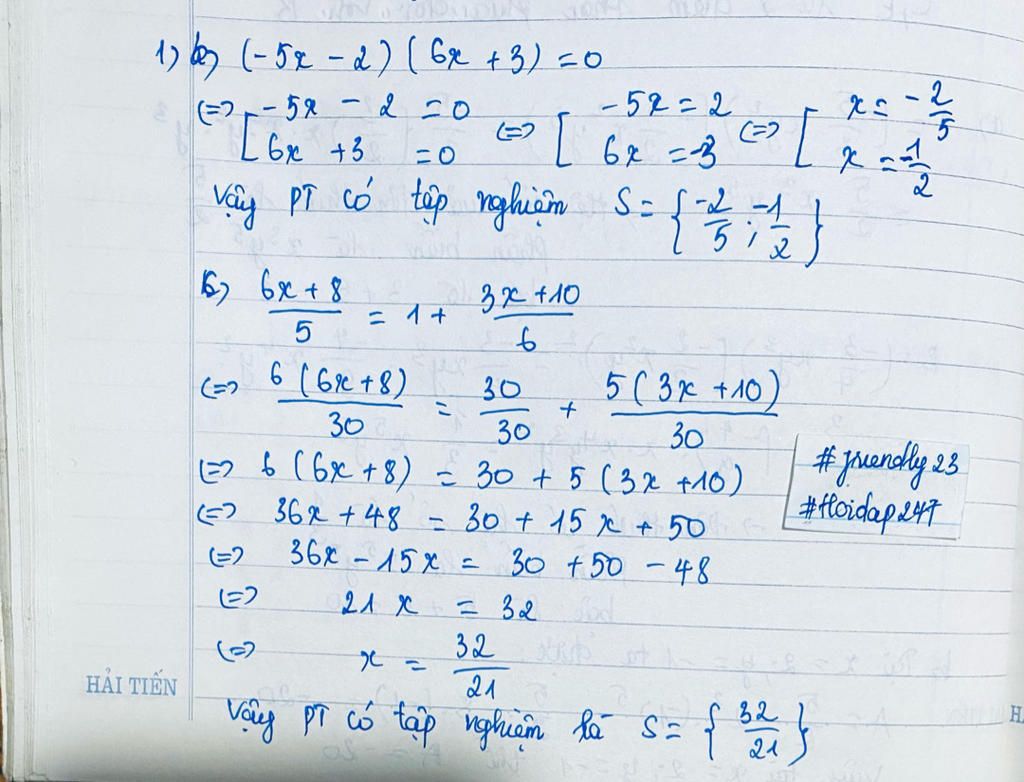 1) b) (-5x - 2) (6x + 3) = 0
<=> [ -5x - 2 = 0 <=> [ -5x = 2 <=> [ x = -2/5
6x + 3 = 0 6x = -3 x = -1/2
Vậy PT có tập nghiệm S = { -2/5 ; -1/2 }
b) (6x + 8)/5 = 1 + (3x + 10)/6
<=> 6 (6x + 8)/30 = 30/30 + 5 (3x + 10)/30
<=> 6 (6x + 8) = 30 + 5 (3x + 10)
<=> 36x + 48 = 30 + 15x + 50
<=> 36x - 15x = 30 + 50 - 48
<=> 21x = 32
<=> x = 32/21
Vậy PT có tập nghiệm là S = { 32/21 }
#friendly23
#Hoidap247
HẢI TIẾN